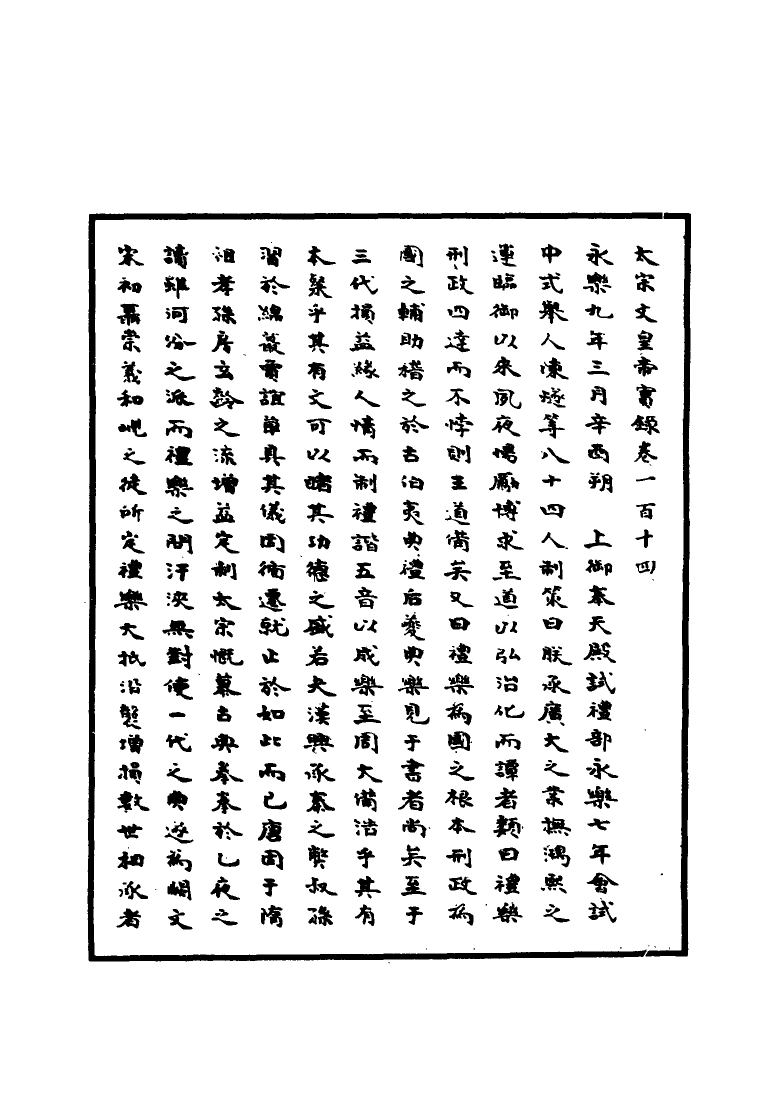 太宗文皇帝實錄卷一百十四
永樂九年三月辛酉朔　上御奉天殿試禮部永樂七年會試
中式舉人陳燧等八十四人制策曰朕承廣大之業撫鴻熙之
運臨御以來夙夜惕厲博求至道以弘治化而譚者類曰禮樂
刑政四達而不悖則王道備矣又曰禮樂為國之根本刑政為
國之輔助稽之於古伯夷典禮后夔典樂見于書者尚矣至于
三代損益緣人情而制禮諧五音以成樂至周大備浩乎其有
本粲乎其有文可以睹其功德之盛若夫漢興承秦之弊叔孫
習於綿蕞賈誼草具其儀因循遷就止於如此而已唐因于隋
祖孝孫房玄齡之流增益定制太宗慨慕古典拳拳於乙夜之
讀雖河汾之派而禮樂之問汗浹無對使一代之典遂為闕文
宋初聶崇義和峴之徒所定禮樂大抵沿襲增損數世相承者